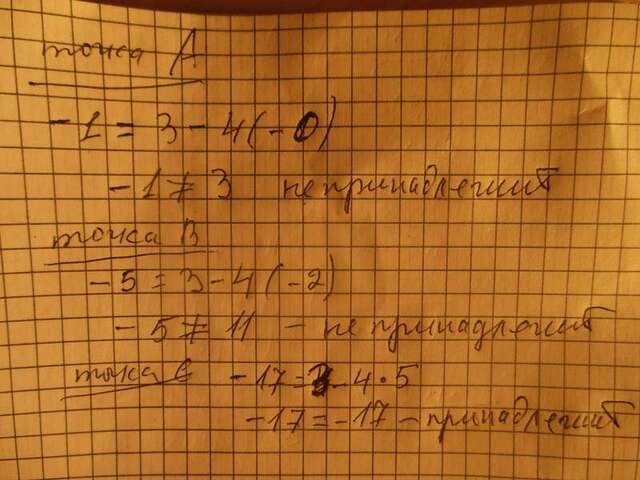 точка А
-1 = 3 - 4(-0)
-1 ≠ 3 не принадлежит
точка В
-5 = 3 - 4(-2)
-5 ≠ 11 - не принадлежит
точка С -17 = 3 - 4·5
-17 = -17 - принадлежит